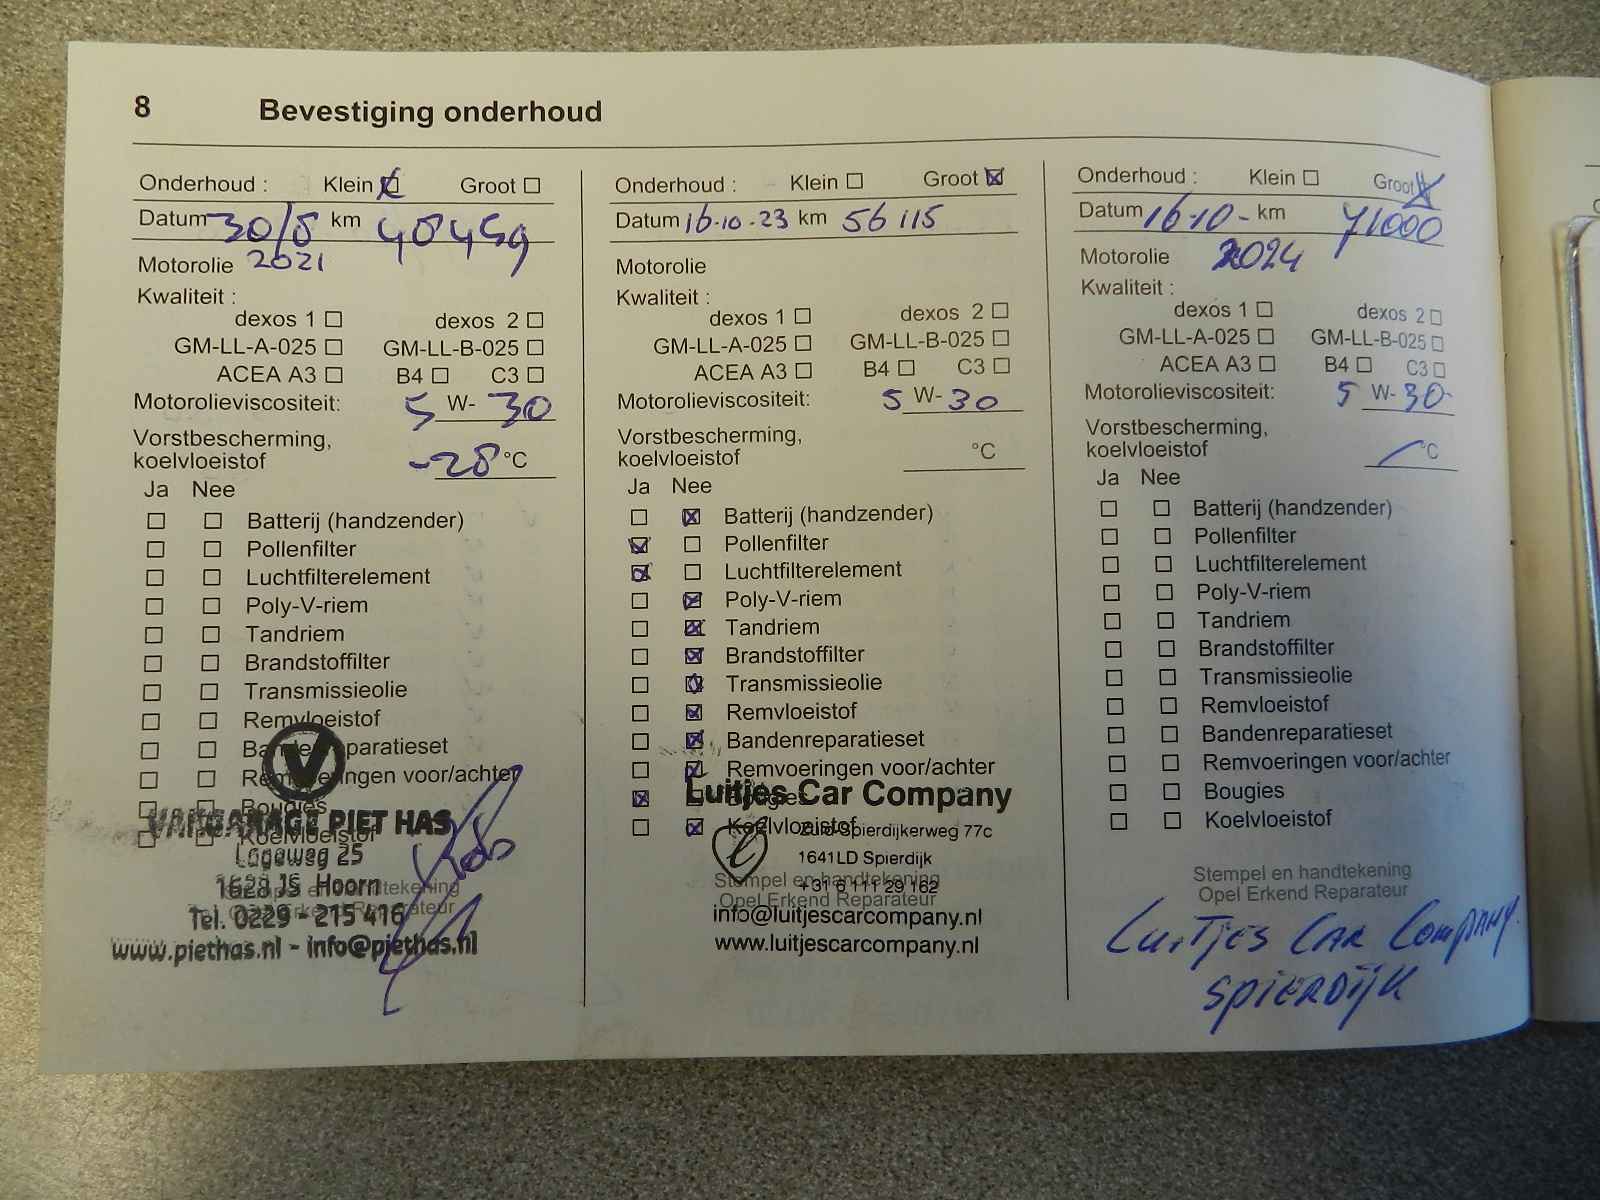 8 Bevestiging onderhoud
Onderhoud : Klein Groot
Datum 30/8 km 48459
Motorolie 2021
Kwaliteit :
dexos 1 dexos 2
GM-LL-A-025 GM-LL-B-025
ACEA A3 B4 C3
Motorolieviscositeit: 5 W- 30
Vorstbescherming,
koelvloeistof -28 °C
Ja Nee
Batterij (handzender)
Pollenfilter
Luchtfilterelement
Poly-V-riem
Tandriem
Brandstoffilter
Transmissieolie
Remvloeistof
Bandenreparatieset
Remvoeringen voor/achter
Bougies
Koelvloeistof
VAKGARAGE PIET HAS
Lageweg 25
1628 JS Hoorn
Stempel en handtekening
Tel. 0229 - 215 416
Opel Erkend Reparateur
www.piethas.nl - info@piethas.nl
Onderhoud : Klein Groot
Datum 16-10-23 km 56115
Motorolie
Kwaliteit :
dexos 1 dexos 2
GM-LL-A-025 GM-LL-B-025
ACEA A3 B4 C3
Motorolieviscositeit: 5 W- 30
Vorstbescherming,
koelvloeistof °C
Ja Nee
Batterij (handzender)
Pollenfilter
Luchtfilterelement
Poly-V-riem
Tandriem
Brandstoffilter
Transmissieolie
Remvloeistof
Bandenreparatieset
Remvoeringen voor/achter
Luitjes Car Company
Bougies
Koelvloeistof
Zuid-Spierdijkerweg 77c
1641LD Spierdijk
Stempel en handtekening
+31 6 111 29 162
Opel Erkend Reparateur
info@luitjescarcompany.nl
www.luitjescarcompany.nl
Onderhoud : Klein Groot
Datum 16-10- km 71000
Motorolie 2024
Kwaliteit :
dexos 1 dexos 2
GM-LL-A-025 GM-LL-B-025
ACEA A3 B4 C3
Motorolieviscositeit: 5 W- 30-
Vorstbescherming,
koelvloeistof °C
Ja Nee
Batterij (handzender)
Pollenfilter
Luchtfilterelement
Poly-V-riem
Tandriem
Brandstoffilter
Transmissieolie
Remvloeistof
Bandenreparatieset
Remvoeringen voor/achter
Bougies
Koelvloeistof
Stempel en handtekening
Opel Erkend Reparateur
LuiTjes CAR Company.
SpiERDijK